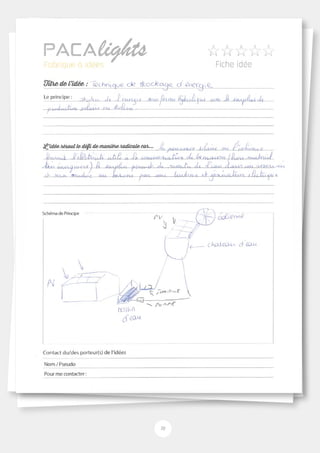 PACAlights
Fabrique à idées
Fiche idée
Titre de l'idée : Technique de stockage d'énergie
Le principe : stocker de l'énergie sous forme hydraulique avec le surplus de
production solaire ou éolien
L'idée résout le défi de manière radicale car... la puissance solaire ou l'éolienne
fournit l'électricité utile à la consommation de la maison
le surplus permet de monter de l'eau dans un réservoir
et génération électrique
Schéma de Principe
PV
éolienne
chateau d'eau
PV
turbine
pompe
d'eau
Contact du/des porteur(s) de l'idées
Nom / Pseudo
Pour me contacter :